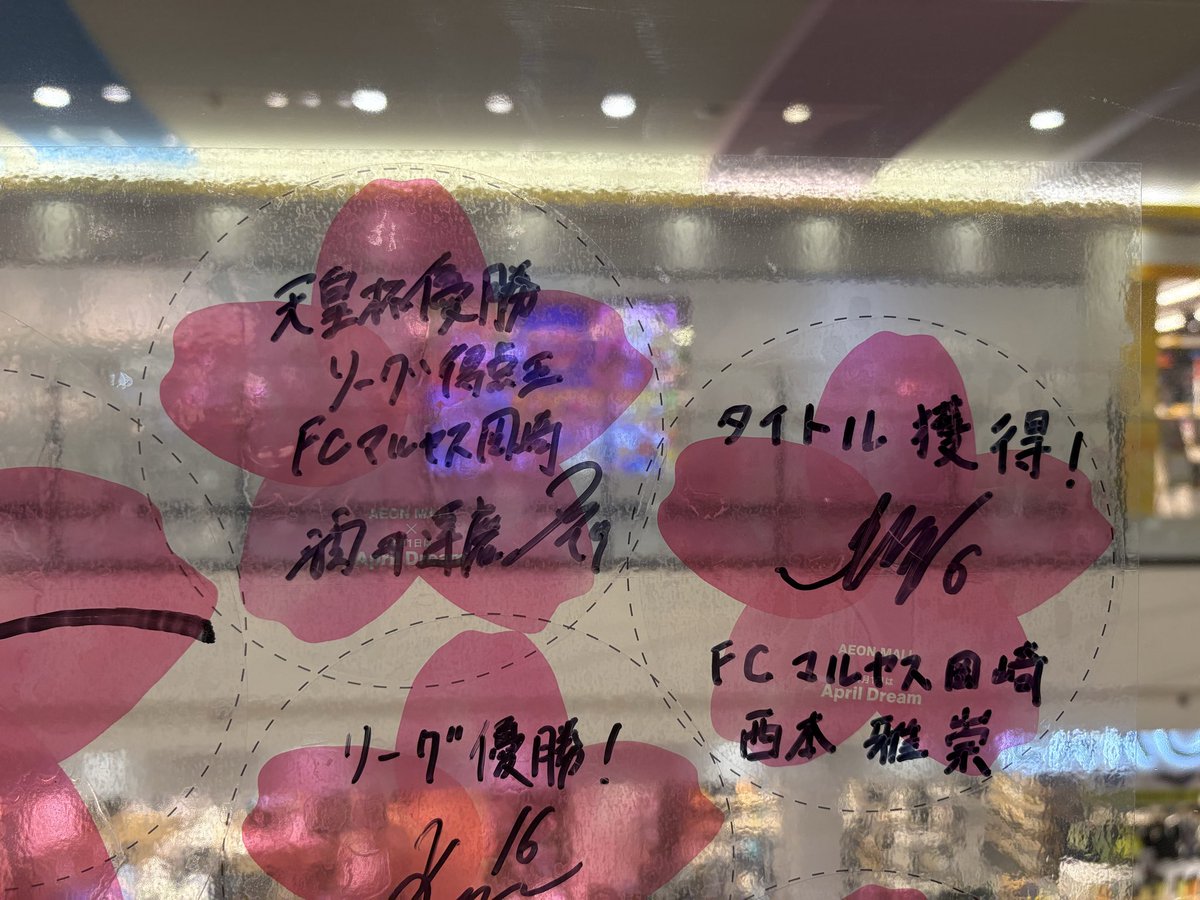 天皇杯優勝
リーグ得点王
FCマルヤス岡崎
AEON MALL
×
April Dream
29
タイトル獲得!
6
AEON MALL
April Dream
FCマルヤス岡崎
西本 雅崇
リーグ優勝!
16